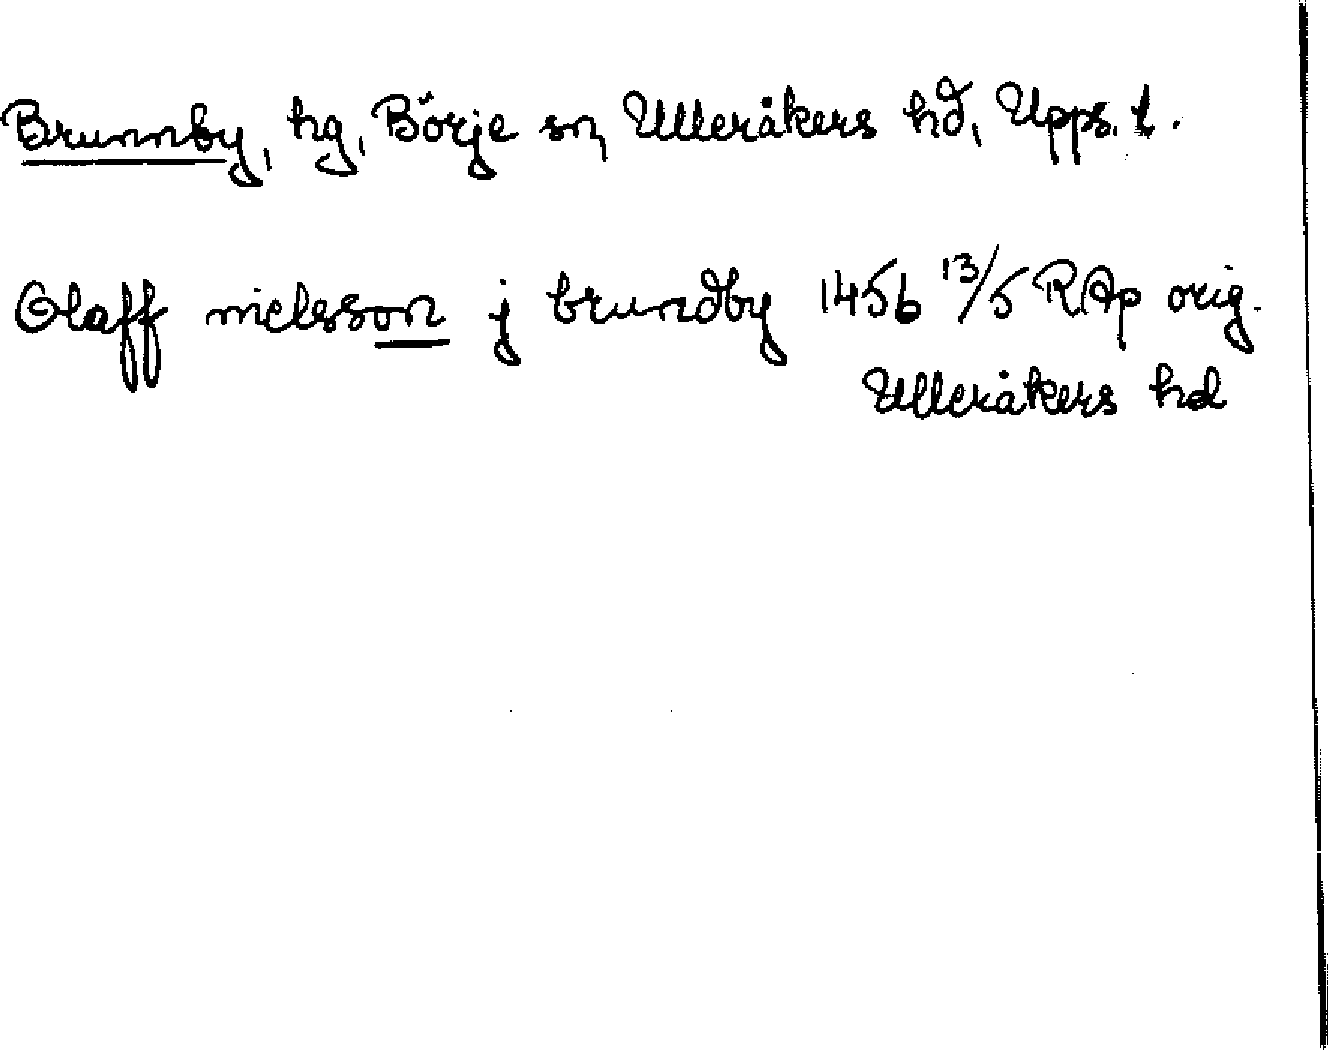 Brunnby, hg, Börje sn, Ulleråkers hd, Upps. l.
Olaff nielsson j brundby 1456 13/5 RAp orig.
Ulleråkers hd